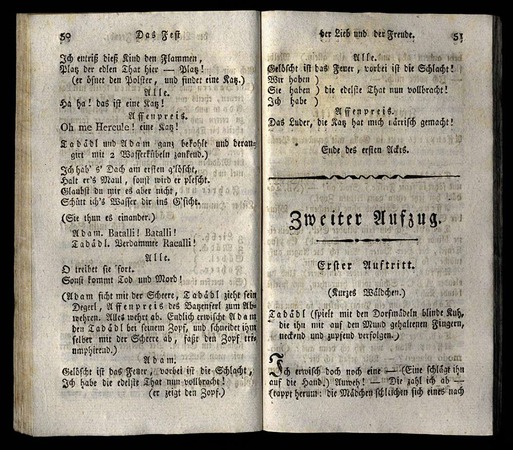 50 Das Fest
Ich entriß dieß Kind den Flammen,
Platz der edlen That hier — Platz!
(er öfnet den Polster, und findet eine Katz.)
Alle.
Ha ha! das ist eine Katz!
Affenpreis.
Oh me Hercule! eine Katz!
Tadädl und Adam ganz bekohlt und derangirt
mit 2 Wasserkübeln zankend.)
Ich hab' s' Dach am ersten g'löscht,
Halt er's Maul, sonst wird er plescht.
Glaubst du mir es aber nicht,
Schütt ich's Wasser dir ins G'sicht.
(Sie thun es einander.)
Adam. Batalli! Batalli!
Tadädl. Verdammter Racalli!
Alle.
O treibet sie fort.
Sonst kommt Tod und Mord!
(Adam ficht mit der Scheere, Tadädl zieht sein
Degerl, Affenpreis des Bazenferl zum Abwehren.
Alles wehrt ab. Endlich erwischt Adam
den Tadädl bei seinem Zopf, und schneidet ihm
selber mit der Scheere ab, faßt den Zopf triumphirend.)
Adam.
Gelöscht ist das Feuer, vorbei ist die Schlacht,
Ich habe die edelste That nun vollbracht!
(er zeigt den Zopf.)
der Lieb und der Freude. 51
Alle.
Gelöscht ist das Feuer, vorbei ist die Schlacht!
Wir haben )
Sie haben ) die edelste That nun vollbracht!
Ich habe )
Affenpreis.
Das Luder, die Katz hat mich närrisch gemacht!
Ende des ersten Akts.
Zweiter Aufzug.
Erster Auftritt.
(Kurzes Wäldchen.)
Tadädl (spielt mit den Dorfmädeln blinde Kuh,
die ihn mit auf den Mund gehaltenen Fingern,
neckend und zupfend verfolgen.)
Ich erwisch doch noch eine — (Eine schlägt ihn
auf die Hand.) Auweh! — Die zahl ich ab —
(tappt herum: die Mädchen schlichen sich eines nach